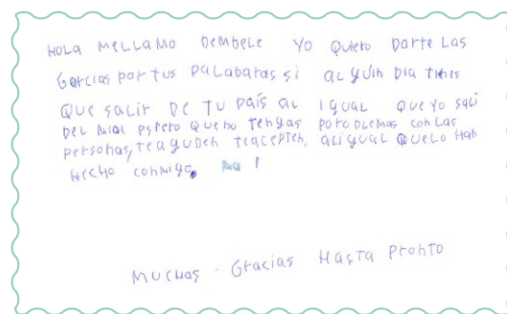 HOLA MELLAMO DEMBELE YO QUIERO DARTE LAS
GARCIAS POR TUS PALABARAS SI ALGUIN DIA TIENES
QUE SALIR DE TU PAÍS AL IGUAL QUE YO SALI
DEL MIO ESPERO QUE NO TENGAS POROBLEMAS CON LAS
PERSONAS, TEAGUDEN TEACEPTEN, ALIGUAL QUELO HAN
HECHO CONMIGO.
MUCHAS. GRACIAS HASTA PRONTO